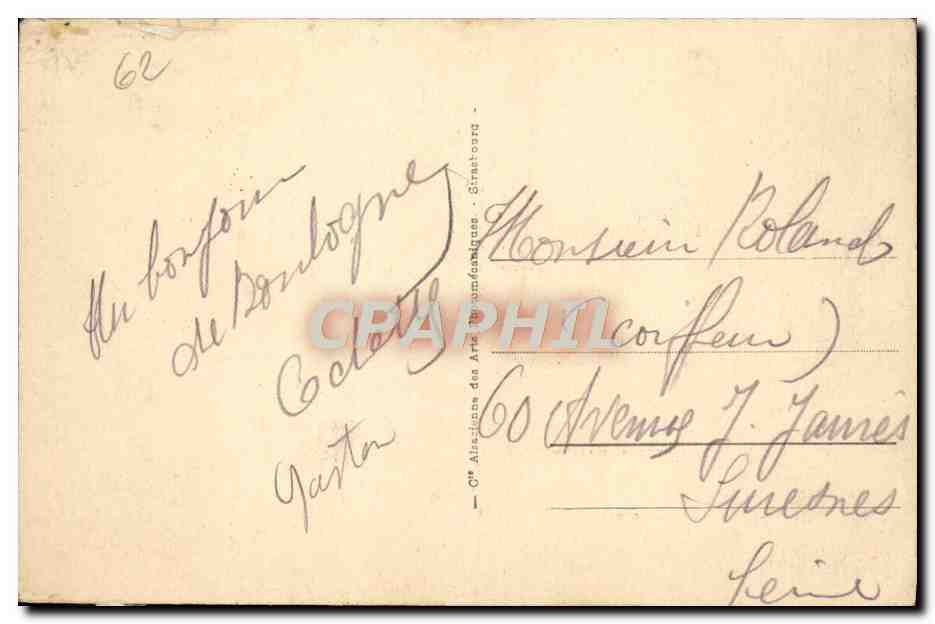 62
Un bonjour
de Boulogne
Odette
Gaston
— Cie Alsacienne des Arts Photomécaniques. - Strasbourg -
Monsieur Roland
(coiffeur)
60 Avenue J. Jaurès
Suresnes
Seine
CPAPHIL